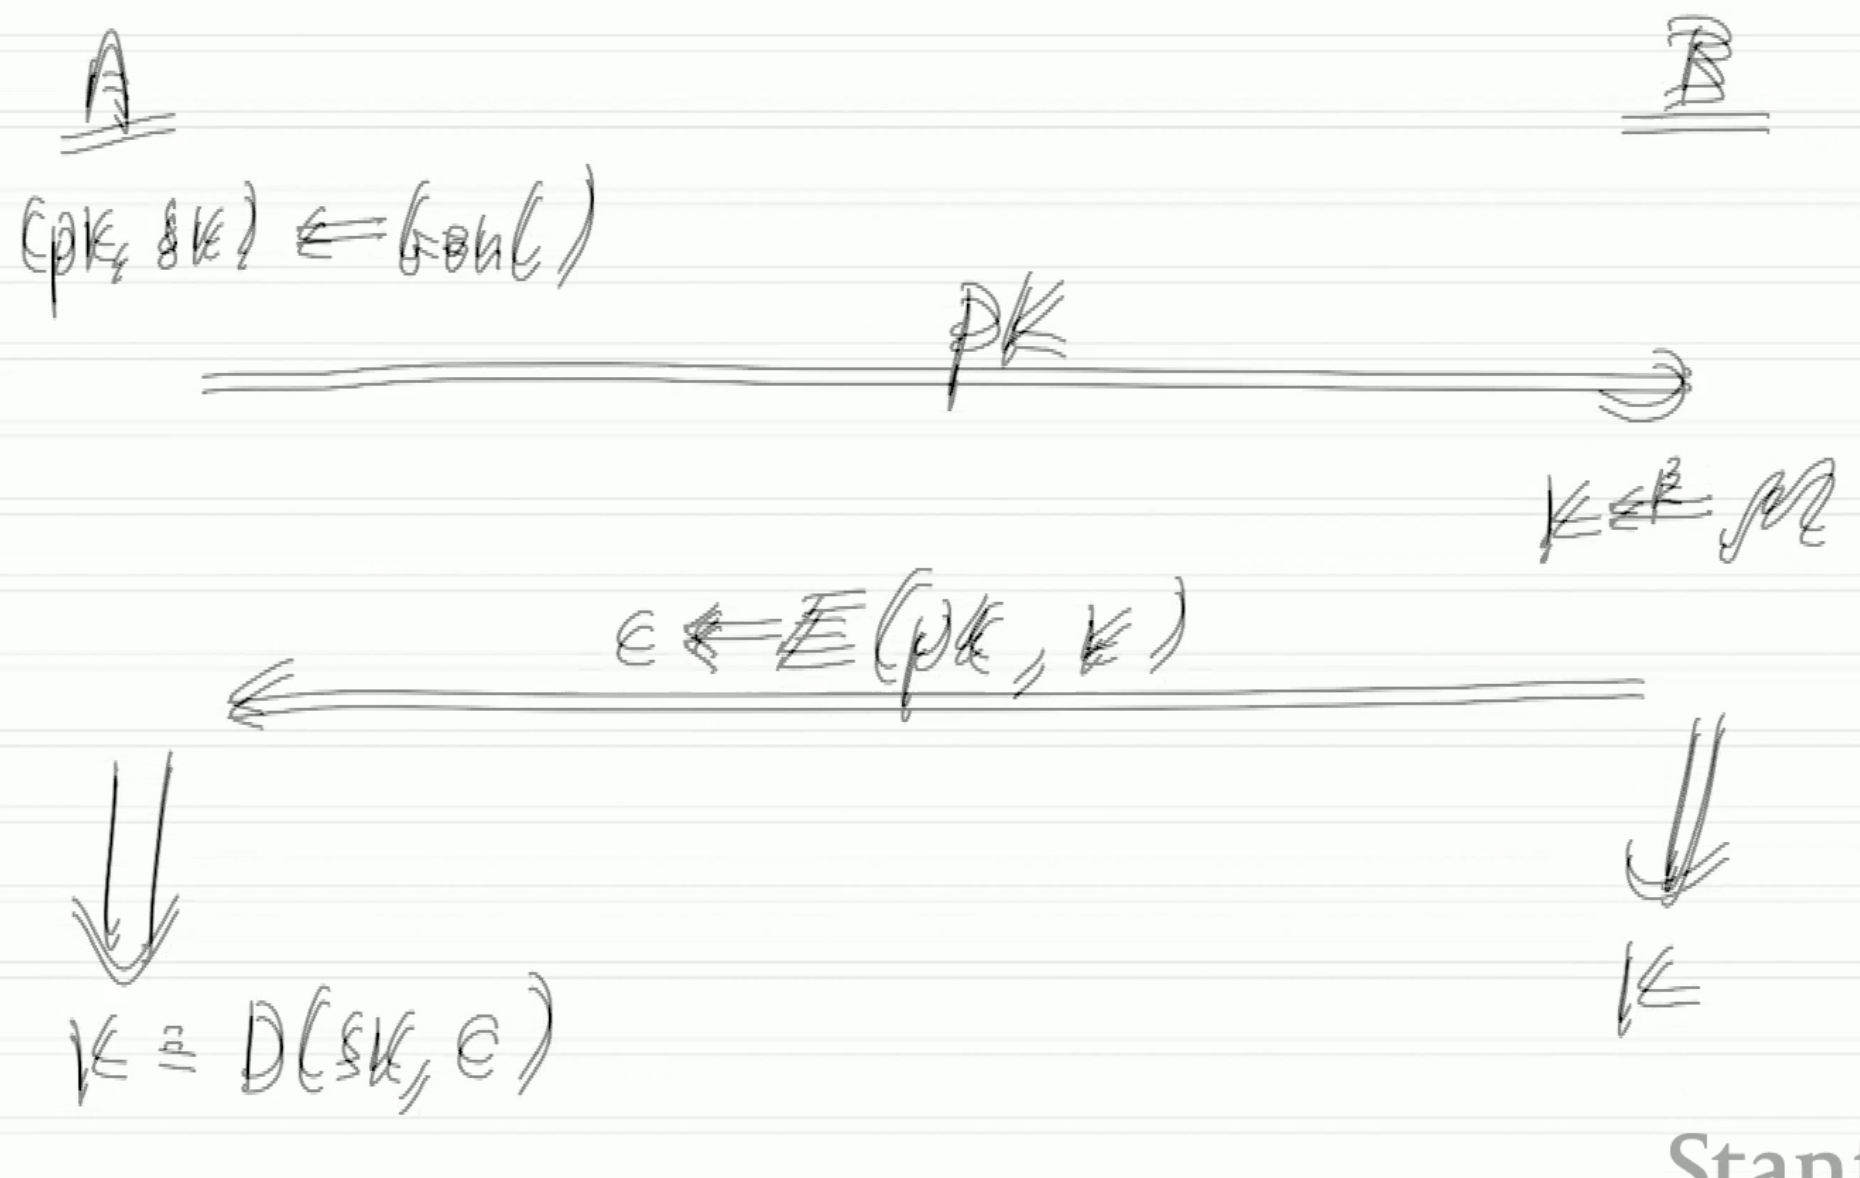 A
B
(pk, sk) ← Gen()
pk
k ←ᴿ M
c ← E(pk, k)
k = D(sk, c)
k
Stan